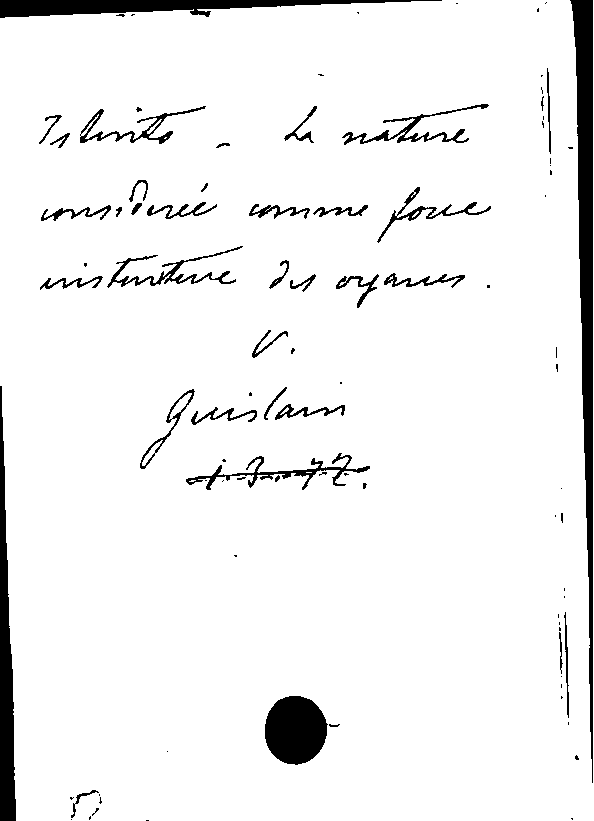 Istinto - La nature
considereé comme force
instinctive des organes.
V.
Guislain
1.3.72.